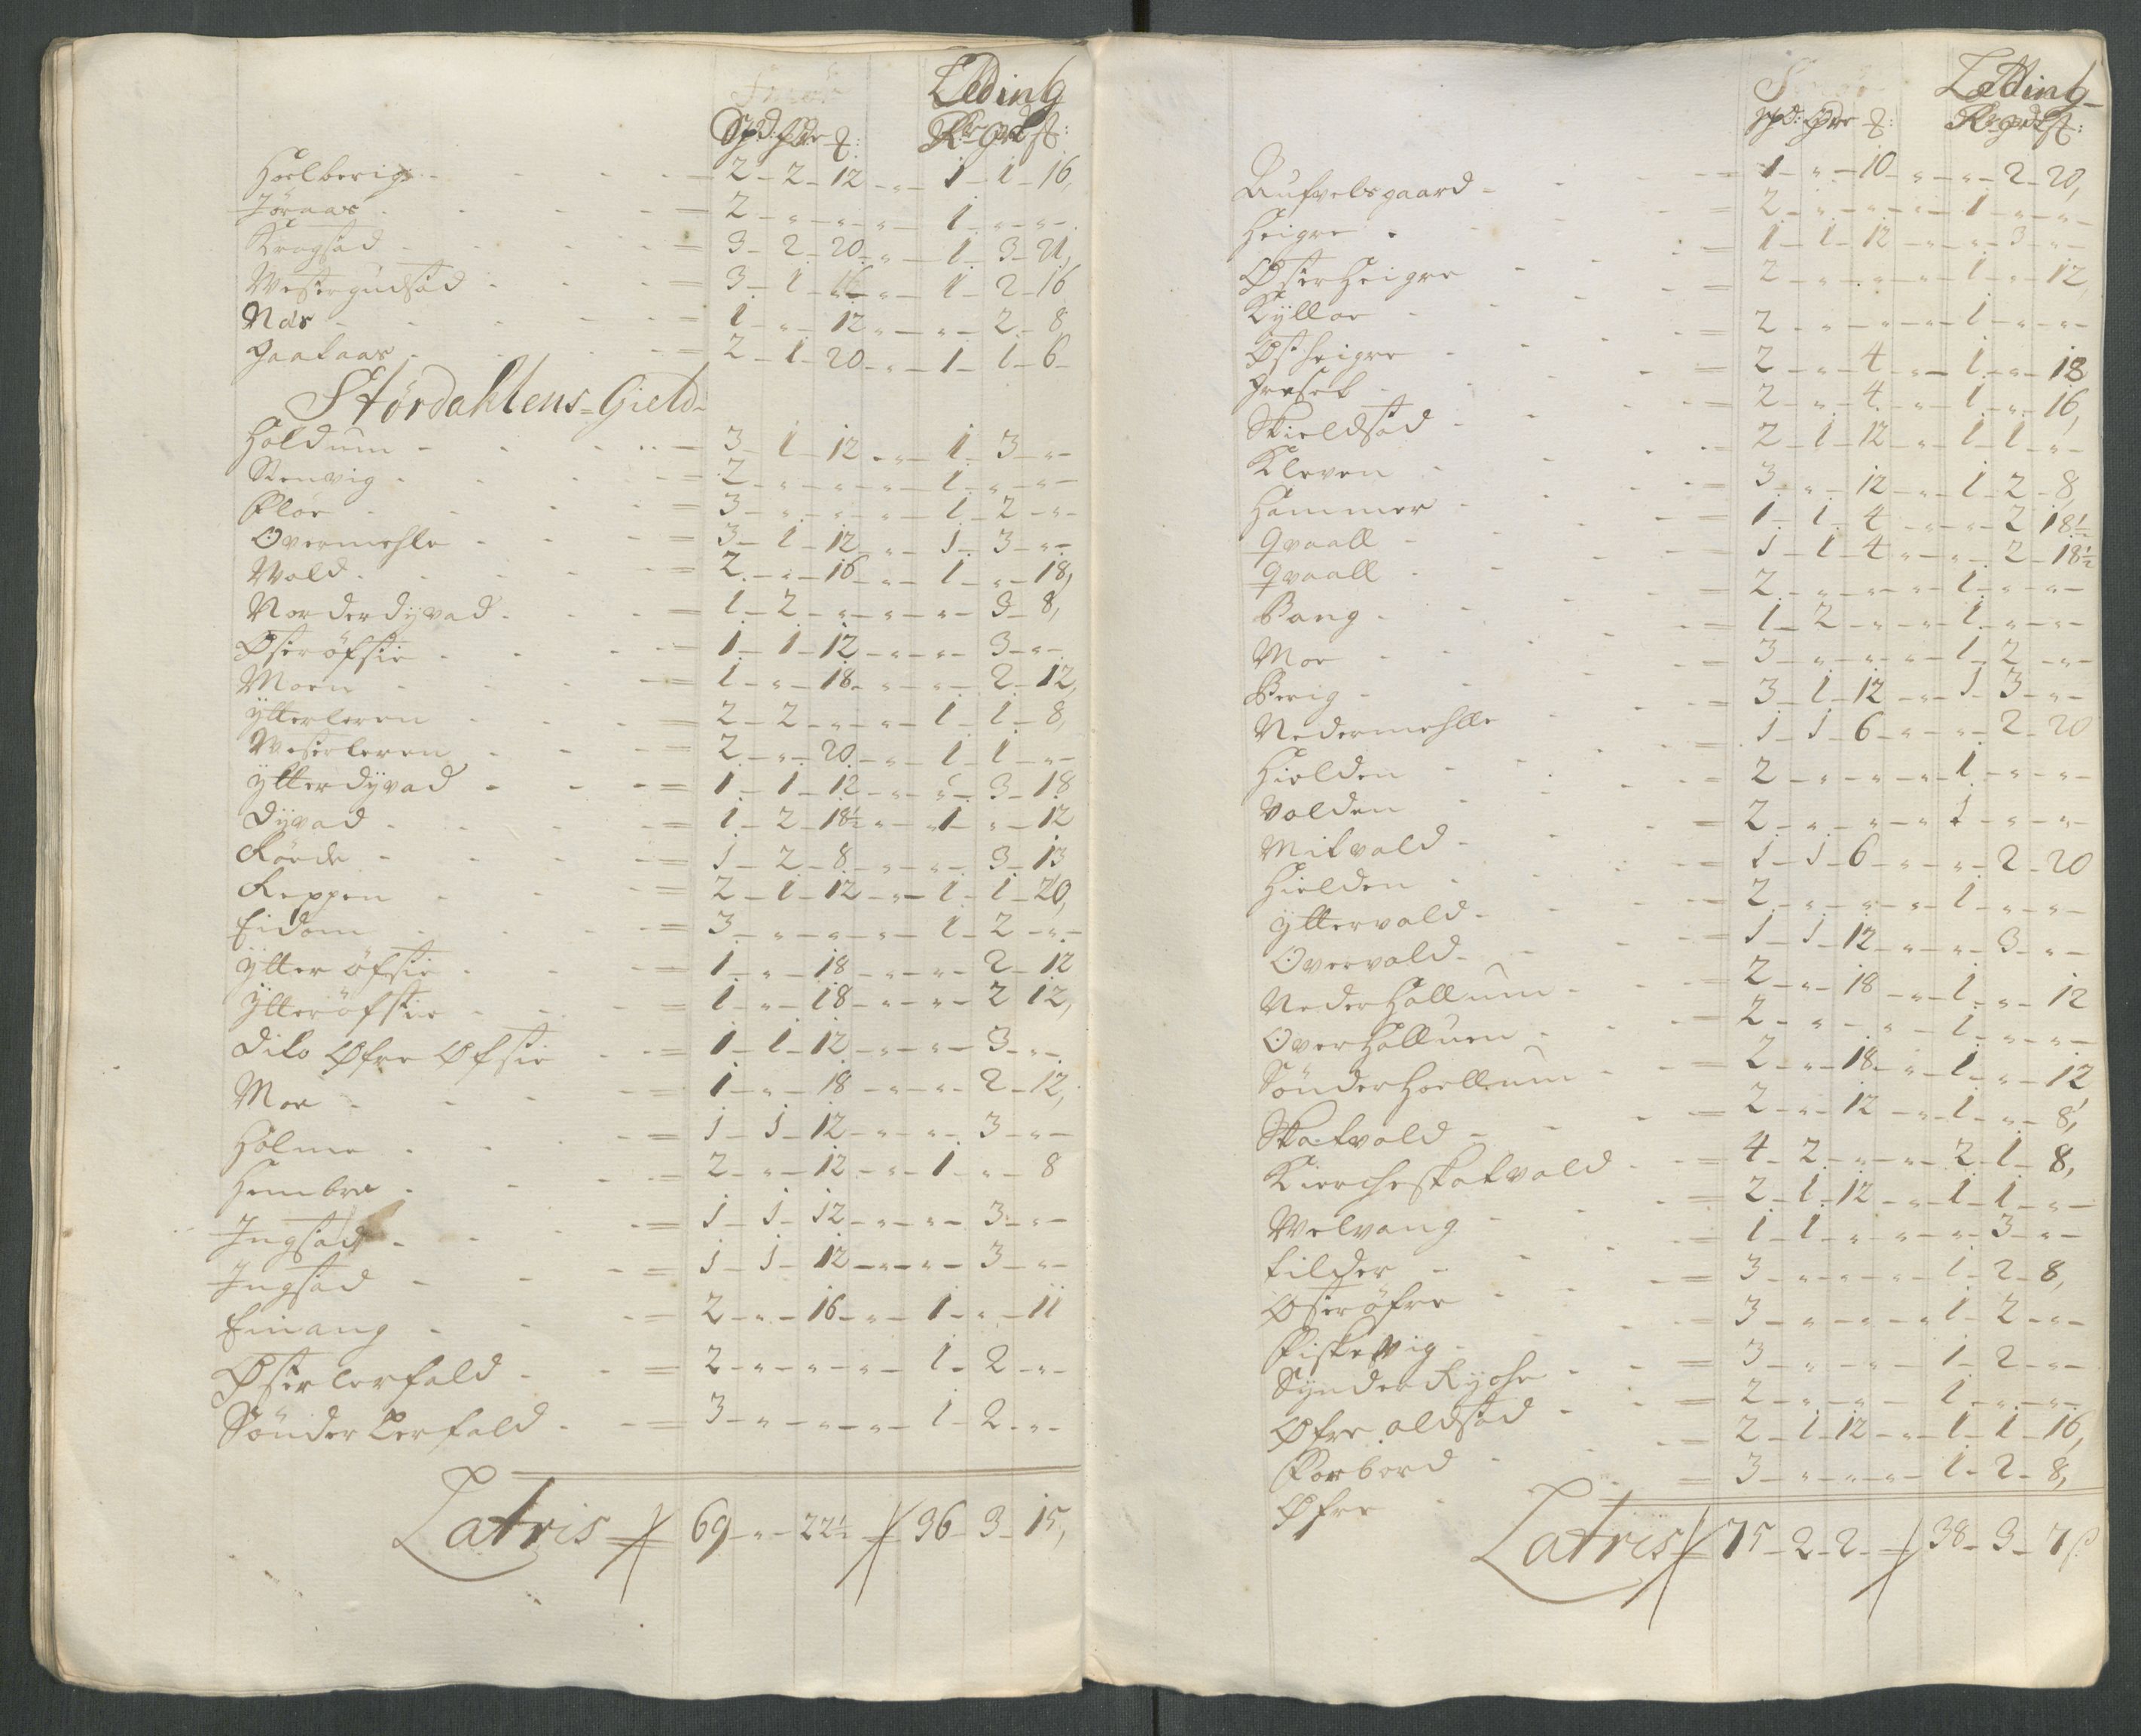 Leding
Spd: Øre ₰: Rdr ort ß:
Hoelberig 2 - 2 - 12 - „ - 1 - 1 - 16,
Jöraas 2 - „ - „ - „ - 1 - „ - „
Kragstad 3 - 2 - 20 - „ - 1 - 3 - 21,
Westergudstad 3 - 1 - 16 - „ - 1 - 2 - 16
Näs 1 - „ - 12 - „ - „ - 2 - 8
2 - 1 - 20 - „ - 1 - 1 - 6
Stördahlens Gield
Holdum 3 - 1 - 12 - „ - 1 - 3 - „
Stenvig 2 - „ - „ - „ - 1 - „ - „
Floe 3 - „ - „ - „ - 1 - 2 - „
Overmehle 3 - 1 - 12 - „ - 1 - 3 - „
Wold 2 - „ - 16 - „ - 1 - „ - 18,
Norderdyvad 1 - 2 - „ - „ - „ - 3 - 8,
Österöfstie 1 - 1 - 12 - „ - „ - 3 - „
Moen 1 - „ - 18 - „ - „ - 2 - 12,
Ytterleren 2 - 2 - „ - „ - 1 - 1 - 8,
Westerleren 2 - „ - 20 - „ - 1 - 1 - „
Ytterdyvad 1 - 1 - 12 - „ - „ - 3 - 18
Dyvad 1 - 2 - 18½ - „ - 1 - „ - 12
Röede 1 - 2 - 8 - „ - „ - 3 - 13
Reppen 2 - 1 - 12 - „ - 1 - 1 - 20,
Eidom 3 - „ - „ - „ - 1 - 2 - „
Ytter öfstie 1 - „ - 18 - „ - „ - 2 - 12
Ytteröfstie 1 - „ - 18 - „ - „ - 2 12,
Dito Øfre Øfstie 1 - 1 - 12 - „ - „ - 3 - „
Moe 1 - „ - 18 - „ - „ - 2 - 12,
Holme 1 - 1 - 12 - „ - „ - 3 - „
Hembre 2 - „ - 12 - „ - 1 - „ - 8
Ingstad 1 - 1 - 12 - „ - „ - 3 - „
Ingstad 1 - 1 - 12 - „ - „ - 3 - „
Einang 2 - „ - 16 - „ - 1 - „ - 11
Østerlerfald 2 - „ - „ - „ - 1 - 2 - „
Sönderlerfald 3 - „ - „ - „ - 1 - 2 - „
Latris 69 - „ - 22½ 36 - 3 - 15,
Leding
Spd: Øre ₰: Rdr ort ß:
1 - „ - 10 - „ - „ - 2 - 20,
Heigre 2 - „ - „ - „ - 1 - „ - „
ØsterHeigre 1 - 1 - 12 - „ - „ - 3 - „
Kylloe 2 - „ - „ - „ - 1 - „ - 12,
Østheigre 2 - „ - „ - „ - 1 - „ - „
2 - „ - 4 - „ - 1 - „ - 18
Skieldstad 2 - „ - 4 - „ - 1 - „ - 16,
Kleven 2 - 1 - 12 - „ - 1 - 1 - „
Hammer 3 - „ - 12 - „ - 1 - 2 - 8,
Qvaall 1 - 1 - 4 - „ - „ - 2 18½
Qvaall 1 - 1 - 4 - „ - „ - 2 - 18½
Bang 2 - „ - „ - „ - 1 - „ - „
Moe 1 - 2 - „ - „ - 1 - „ - „
Berig 3 - „ - „ - „ - 1 - 2 - „
Nedermehlle 3 - 1 - 12 - „ - 1 - 3 - „
Hielden 1 - 1 - 6 - „ - „ - 2 - 20
Volden 2 - „ - „ - „ - 1 - „ - „
Mitvold 2 - „ - „ - „ - 1 - „ - „
Hielden 1 - 1 - 6 - „ - „ - 2 - 20
Yttervold 2 - „ - „ - „ - 1 - „ - „
Overvold 1 - 1 - 12 - „ - „ - 3 - „
NederHollum 2 - „ - 18 - „ - 1 - „ - 12
OverHollum 2 - „ - „ - „ - 1 - „ - „
SönderHoellum 2 - „ - 18 - „ - 1 - „ - 12
Skatvold 2 - „ - 12 - „ - 1 - „ - 8,
Kiercheskatvold 4 - 2 - „ - „ - 2 - 1 - 8,
Welvang 2 - 1 - 12 - „ - 1 - 1 - „
1 - 1 - „ - „ - „ - 3 - „
Østeröfre 3 - „ - „ - „ - 1 - 2 - 8,
Fiskevig 3 - „ - „ - „ - 1 - 2 - „
Synder Ryghe 3 - „ - „ - „ - 1 - 2 - „
Øfre oldstad 2 - „ - „ - „ - 1 - „ - „
Forbord 2 - 1 - 12 - „ - 1 - 1 - 16,
Øfre 3 - „ - „ - „ - 1 - 2 - 8,
Latris 75 - 2 - 2 38 - 3 - 7 ß